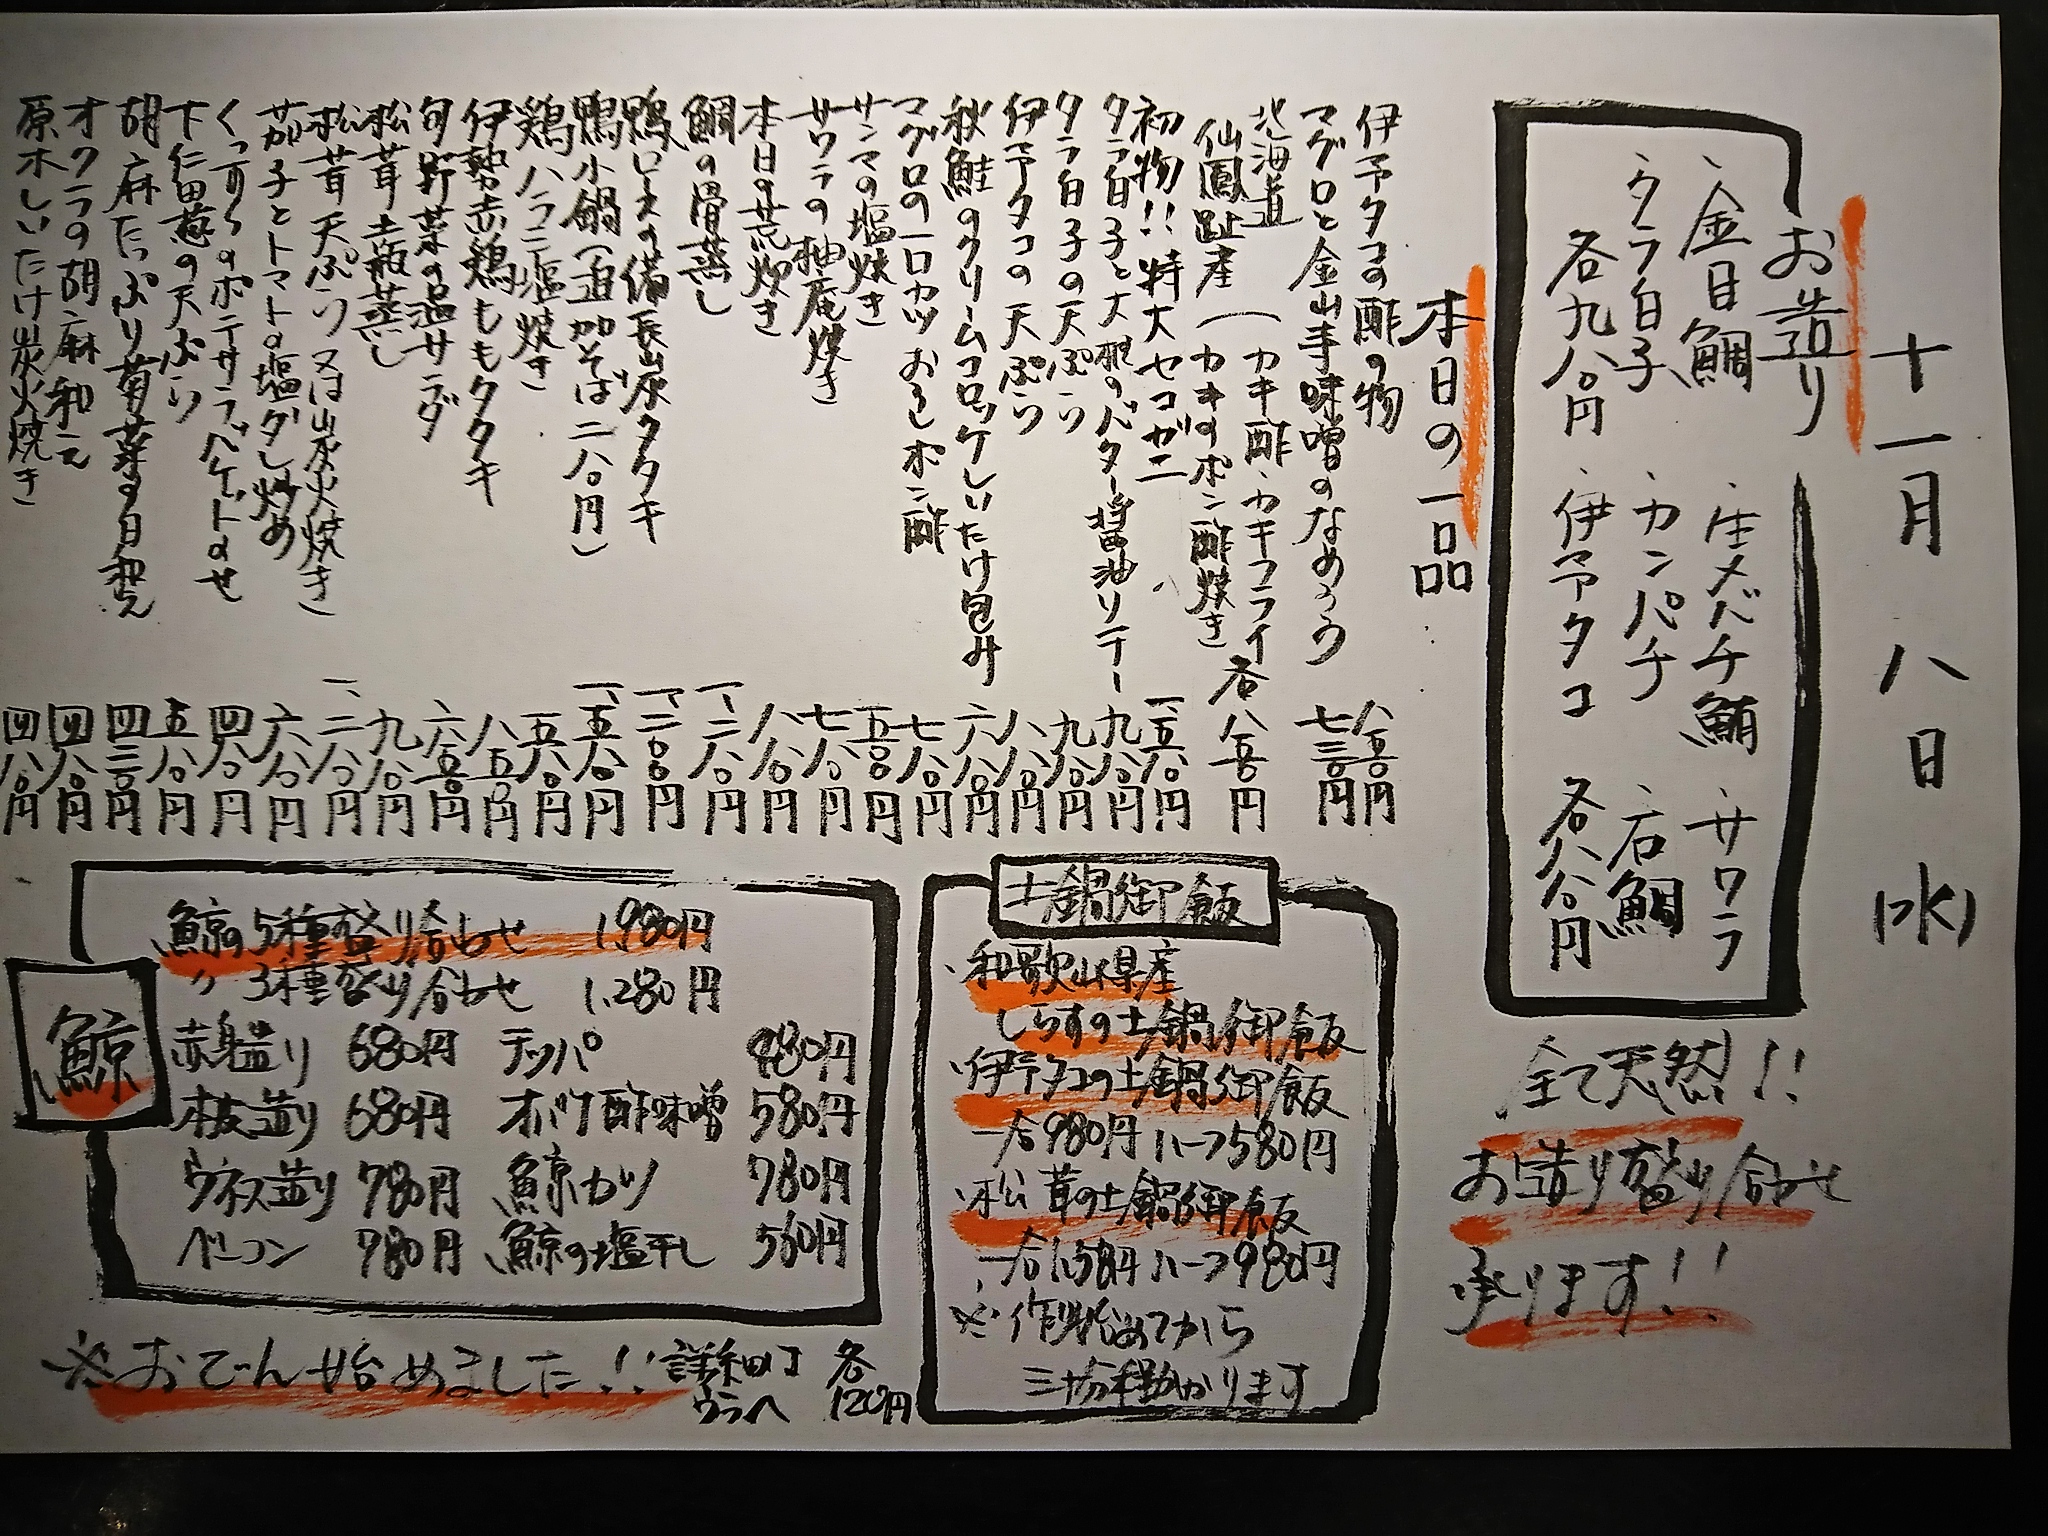 十一月八日(水)
お造り
・金目鯛 ・生メバチ鮪 ・サワラ
・タラ白子 ・カンパチ ・石鯛
各九八〇円 ・伊予タコ 各八八〇円
全て天然!!
お造り盛り合せ
承ります!!
本日の一品
伊予タコの酢の物 八五〇円
マグロと金山寺味噌のなめろう 七三〇円
北海道
仙鳳趾産
(カキ酢・カキフライ
(カキのポン酢焼き
各 八五〇円
初物!!特大セコガニ 一、五八〇円
タラ白子と大根のバター醤油ソテー 九八〇円
タラ白子の天ぷら 九八〇円
伊予タコの天ぷら 八八〇円
秋鮭のクリームコロッケしいたけ包み 六八〇円
マグロの一口カツおろしポン酢 七八〇円
サンマの塩焼き 五八〇円
サワラの柚庵焼き 七八〇円
本日の荒炊き 八八〇円
鯛の骨蒸し 一、二八〇円
鴨ロースの備長炭タタキ 一、二〇〇円
鴨小鍋(追加そば二八〇円) 一、五八〇円
鶏ハラミ塩焼き 五八〇円
伊勢赤鶏ももタタキ 八五〇円
旬野菜の温サラダ 六五〇円
松茸土瓶蒸し 九八〇円
松茸天ぷら又は炭火焼き 一、二八〇円
茄子とトマトの塩ダレ炒め 六八〇円
くっすんのポテサラバケットのせ 四八〇円
下仁田葱の天ぷら 五八〇円
胡麻たっぷり菊菜の白和え 四二〇円
オクラの胡麻和え 四八〇円
原木しいたけ炭火焼き 四八〇円
土鍋御飯
・和歌山県産
しらすの土鍋御飯
・伊予タコの土鍋御飯
一合980円 ハーフ580円
・松茸の土鍋御飯
一合1,580円 ハーフ980円
※作り始めてから
三十分程掛かります
鯨
鯨の5種盛り合わせ 1,980円
〃 3種盛り合わせ 1,280円
赤身造り 680円 テッパ 980円
本皮造り 680円 オバケ酢味噌 580円
ウネス造り 780円 鯨カツ 780円
ベーコン 780円 鯨の塩干し 560円
※おでん始めました!! 詳細は
ウラへ
各
120円